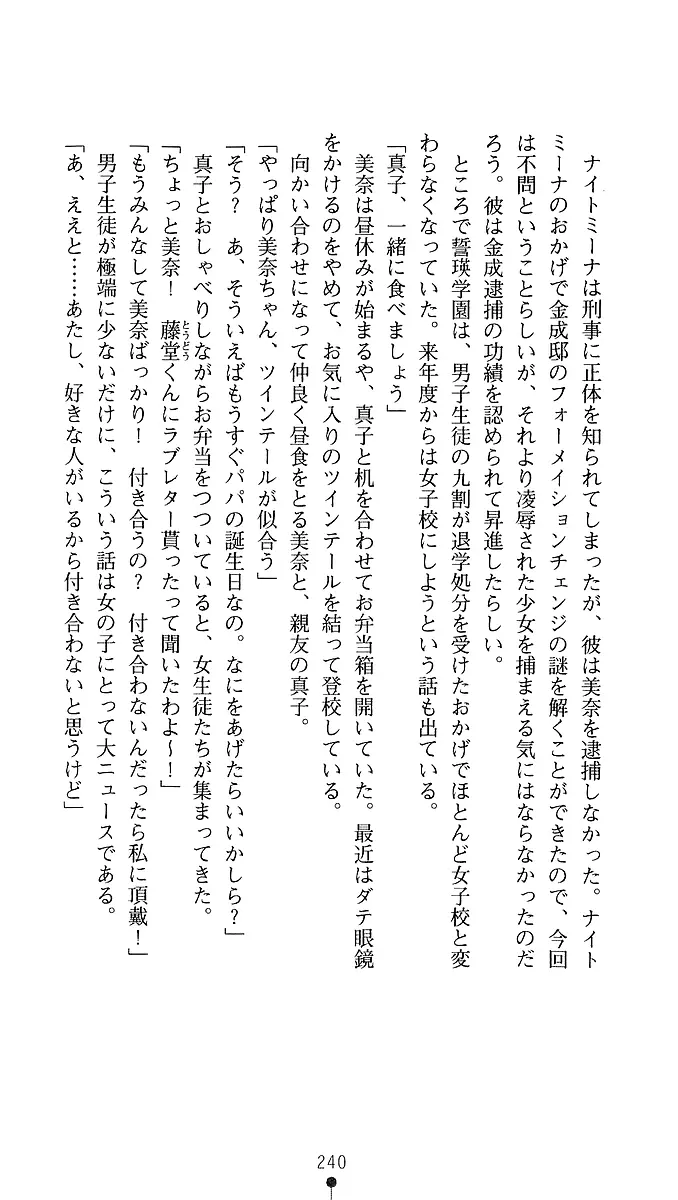 ナイトミーナは刑事に正体を知られてしまったが、彼は美奈を逮捕しなかった。ナイト
ミーナのおかげで金成邸のフォーメイションチェンジの謎を解くことができたので、今回
は不問ということらしいが、それより凌辱された少女を捕まえる気にはならなかったのだ
ろう。彼は金成逮捕の功績を認められて昇進したらしい。
ところで誓瑛学園は、男子生徒の九割が退学処分を受けたおかげでほとんど女子校と変
わらなくなっていた。来年度からは女子校にしようという話も出ている。
「真子、一緒に食べましょう」
美奈は昼休みが始まるや、真子と机を合わせてお弁当箱を開いていた。最近はダテ眼鏡
をかけるのをやめて、お気に入りのツインテールを結って登校している。
向かい合わせになって仲良く昼食をとる美奈と、親友の真子。
「やっぱり美奈ちゃん、ツインテールが似合う」
「そう？　あ、そういえばもうすぐパパの誕生日なの。なにをあげたらいいかしら？」
真子とおしゃべりしながらお弁当をつついていると、女生徒たちが集まってきた。
「ちょっと美奈！　藤堂くんにラブレター貰ったって聞いたわよ～！」
とうどう
「もうみんなして美奈ばっかり！　付き合うの？　付き合わないんだったら私に頂戴！」
男子生徒が極端に少ないだけに、こういう話は女の子にとって大ニュースである。
「あ、ええと……あたし、好きな人がいるから付き合わないと思うけど」
240